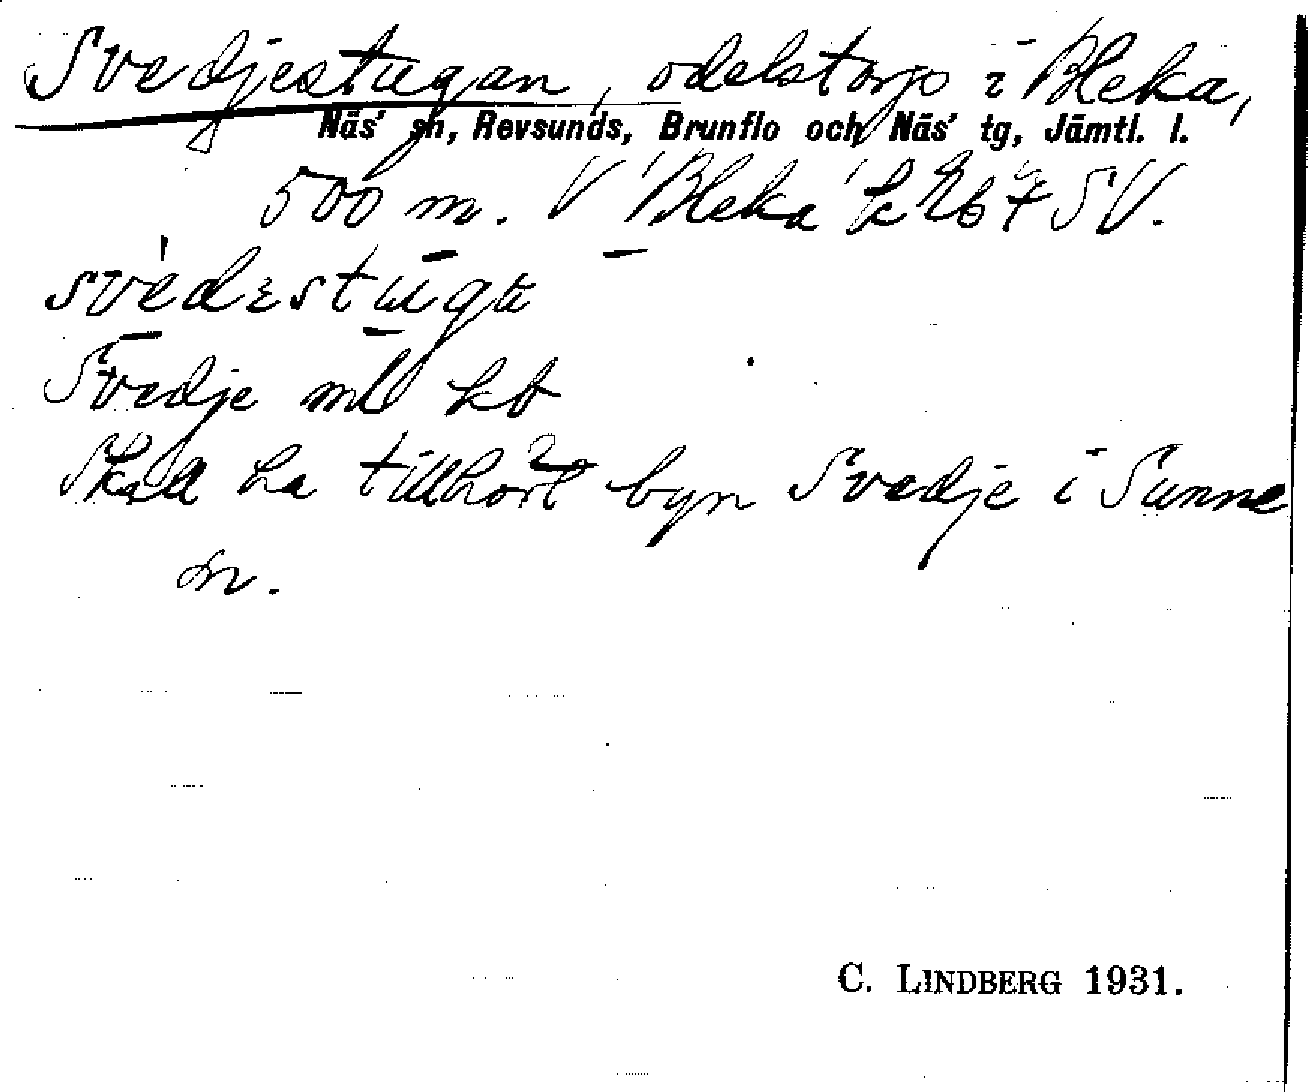 Svedjestugan, odelstorp i Bleka,
Näs' sn, Revsunds, Brunflo och Näs' tg, Jämtl. l.
500 m. V 'Bleka' k SV.
Svedje ml kb
Skall ha tillhört byn Svedje i Sunne
sn.
C. LINDBERG 1931.